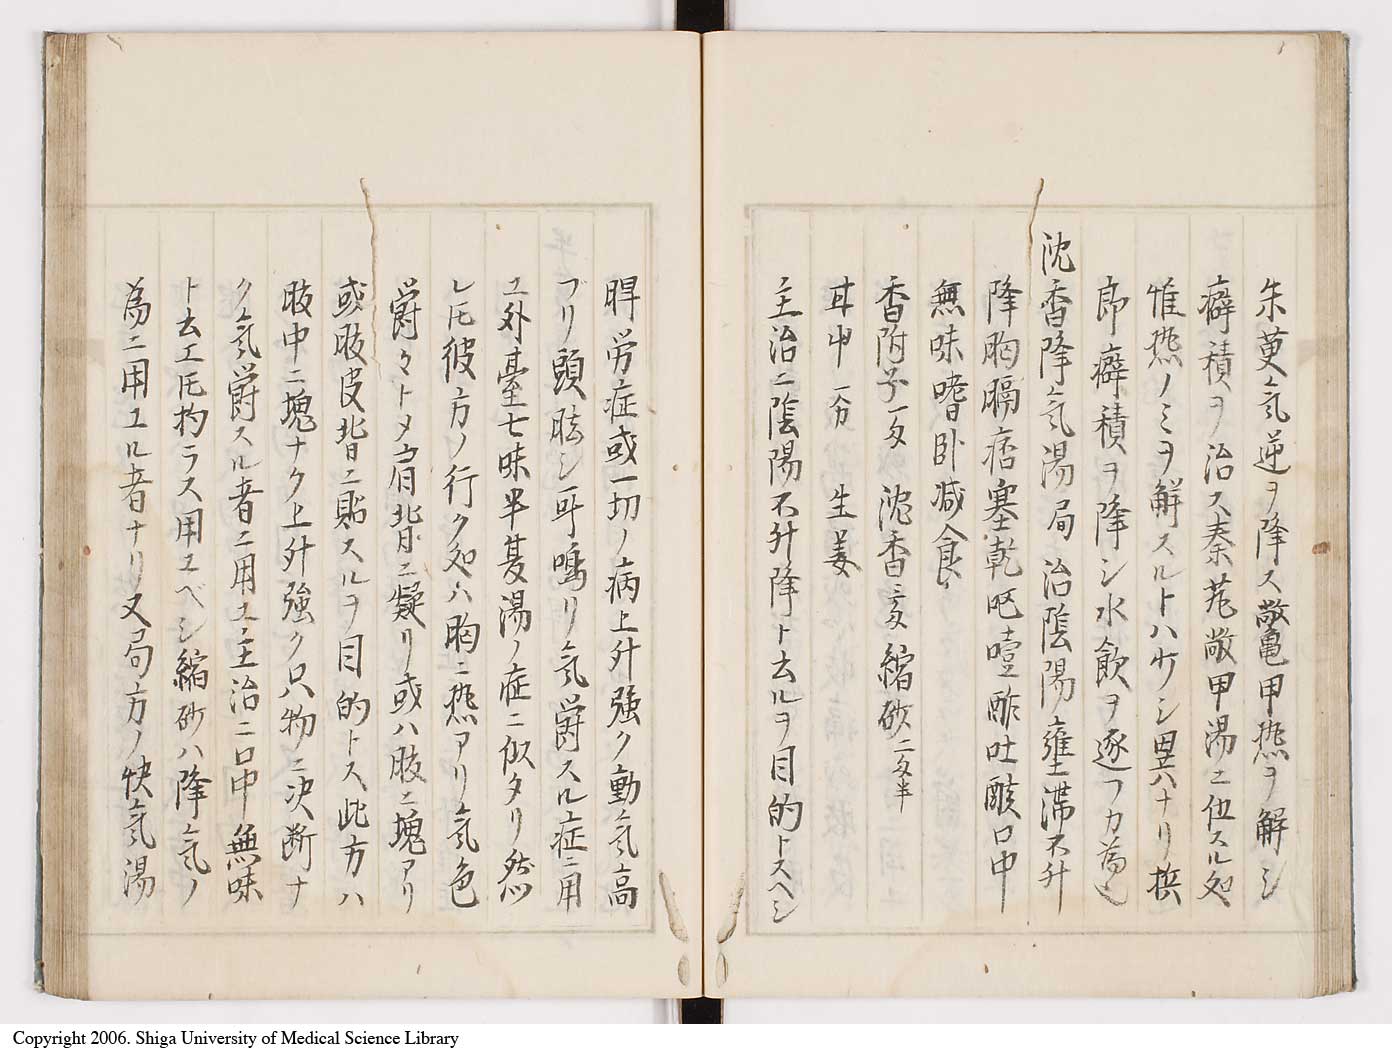 朱萸気逆ヲ降ス敞亀甲热ヲ解シ
癖積ヲ治ス秦芃敞甲湯ニ伍スル処
惟热ノミヲ解スルトハ少シ異ハナリ
即癖積ヲ降シ水飲ヲ逐フカ為也
沈香降気湯局 治陰陽壅滞不升
降胸膈痞塞乾呕噎酢吐酸口中
無味嗜卧减食
香附子一匁 沈香 縮砂二匁半
甘中一分 生姜
主治ニ陰陽不升降ト云ルヲ目的トスヘシ
労症或一切ノ病上升強ク動気高
ブリ頭眩シ耳鳴リ気欝スル症ニ用
ユ外臺七味半夏湯ノ症ニ似タリ然
レ𪜈彼方ノ行ク処ハ胸ニ热アリ気色
欝々トメ肩背ニ凝リ或ハ肢ニ塊アリ
或肢皮背ニ貼スルヲ目的トス此方ハ
肢中ニ塊ナク上升強ク只物ニ决断ナ
ク気欝スル者ニ用ユ主治ニ口中無味
ト云エ𪜈杓ラス用ユベシ縮砂ハ降気ノ
為ニ用ユル者ナリ又局方ノ快気湯